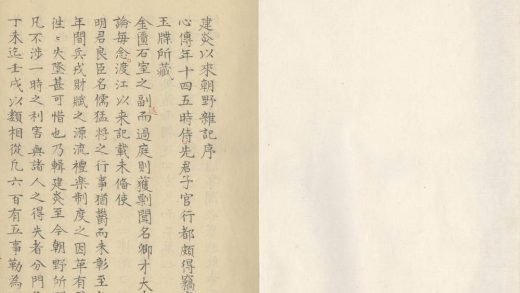 建炎以來朝野雜記序
心傳年十四五時侍先君子官行都頗得竊
玉牒所藏
金匱石室之副而過庭則獲剽聞名卿才大
論每念渡江以来記載未僃使
明君良臣名儒猛将之行事猶鬱而未彰至
年間兵戎財賦之源流禮樂制度之因革有
徃〻失墜甚可惜也乃輯建炎至今朝野所
凡不涉一時之利害與諸人之得失者分門
丁未迄壬戌以類相從凢六百有五事勒為